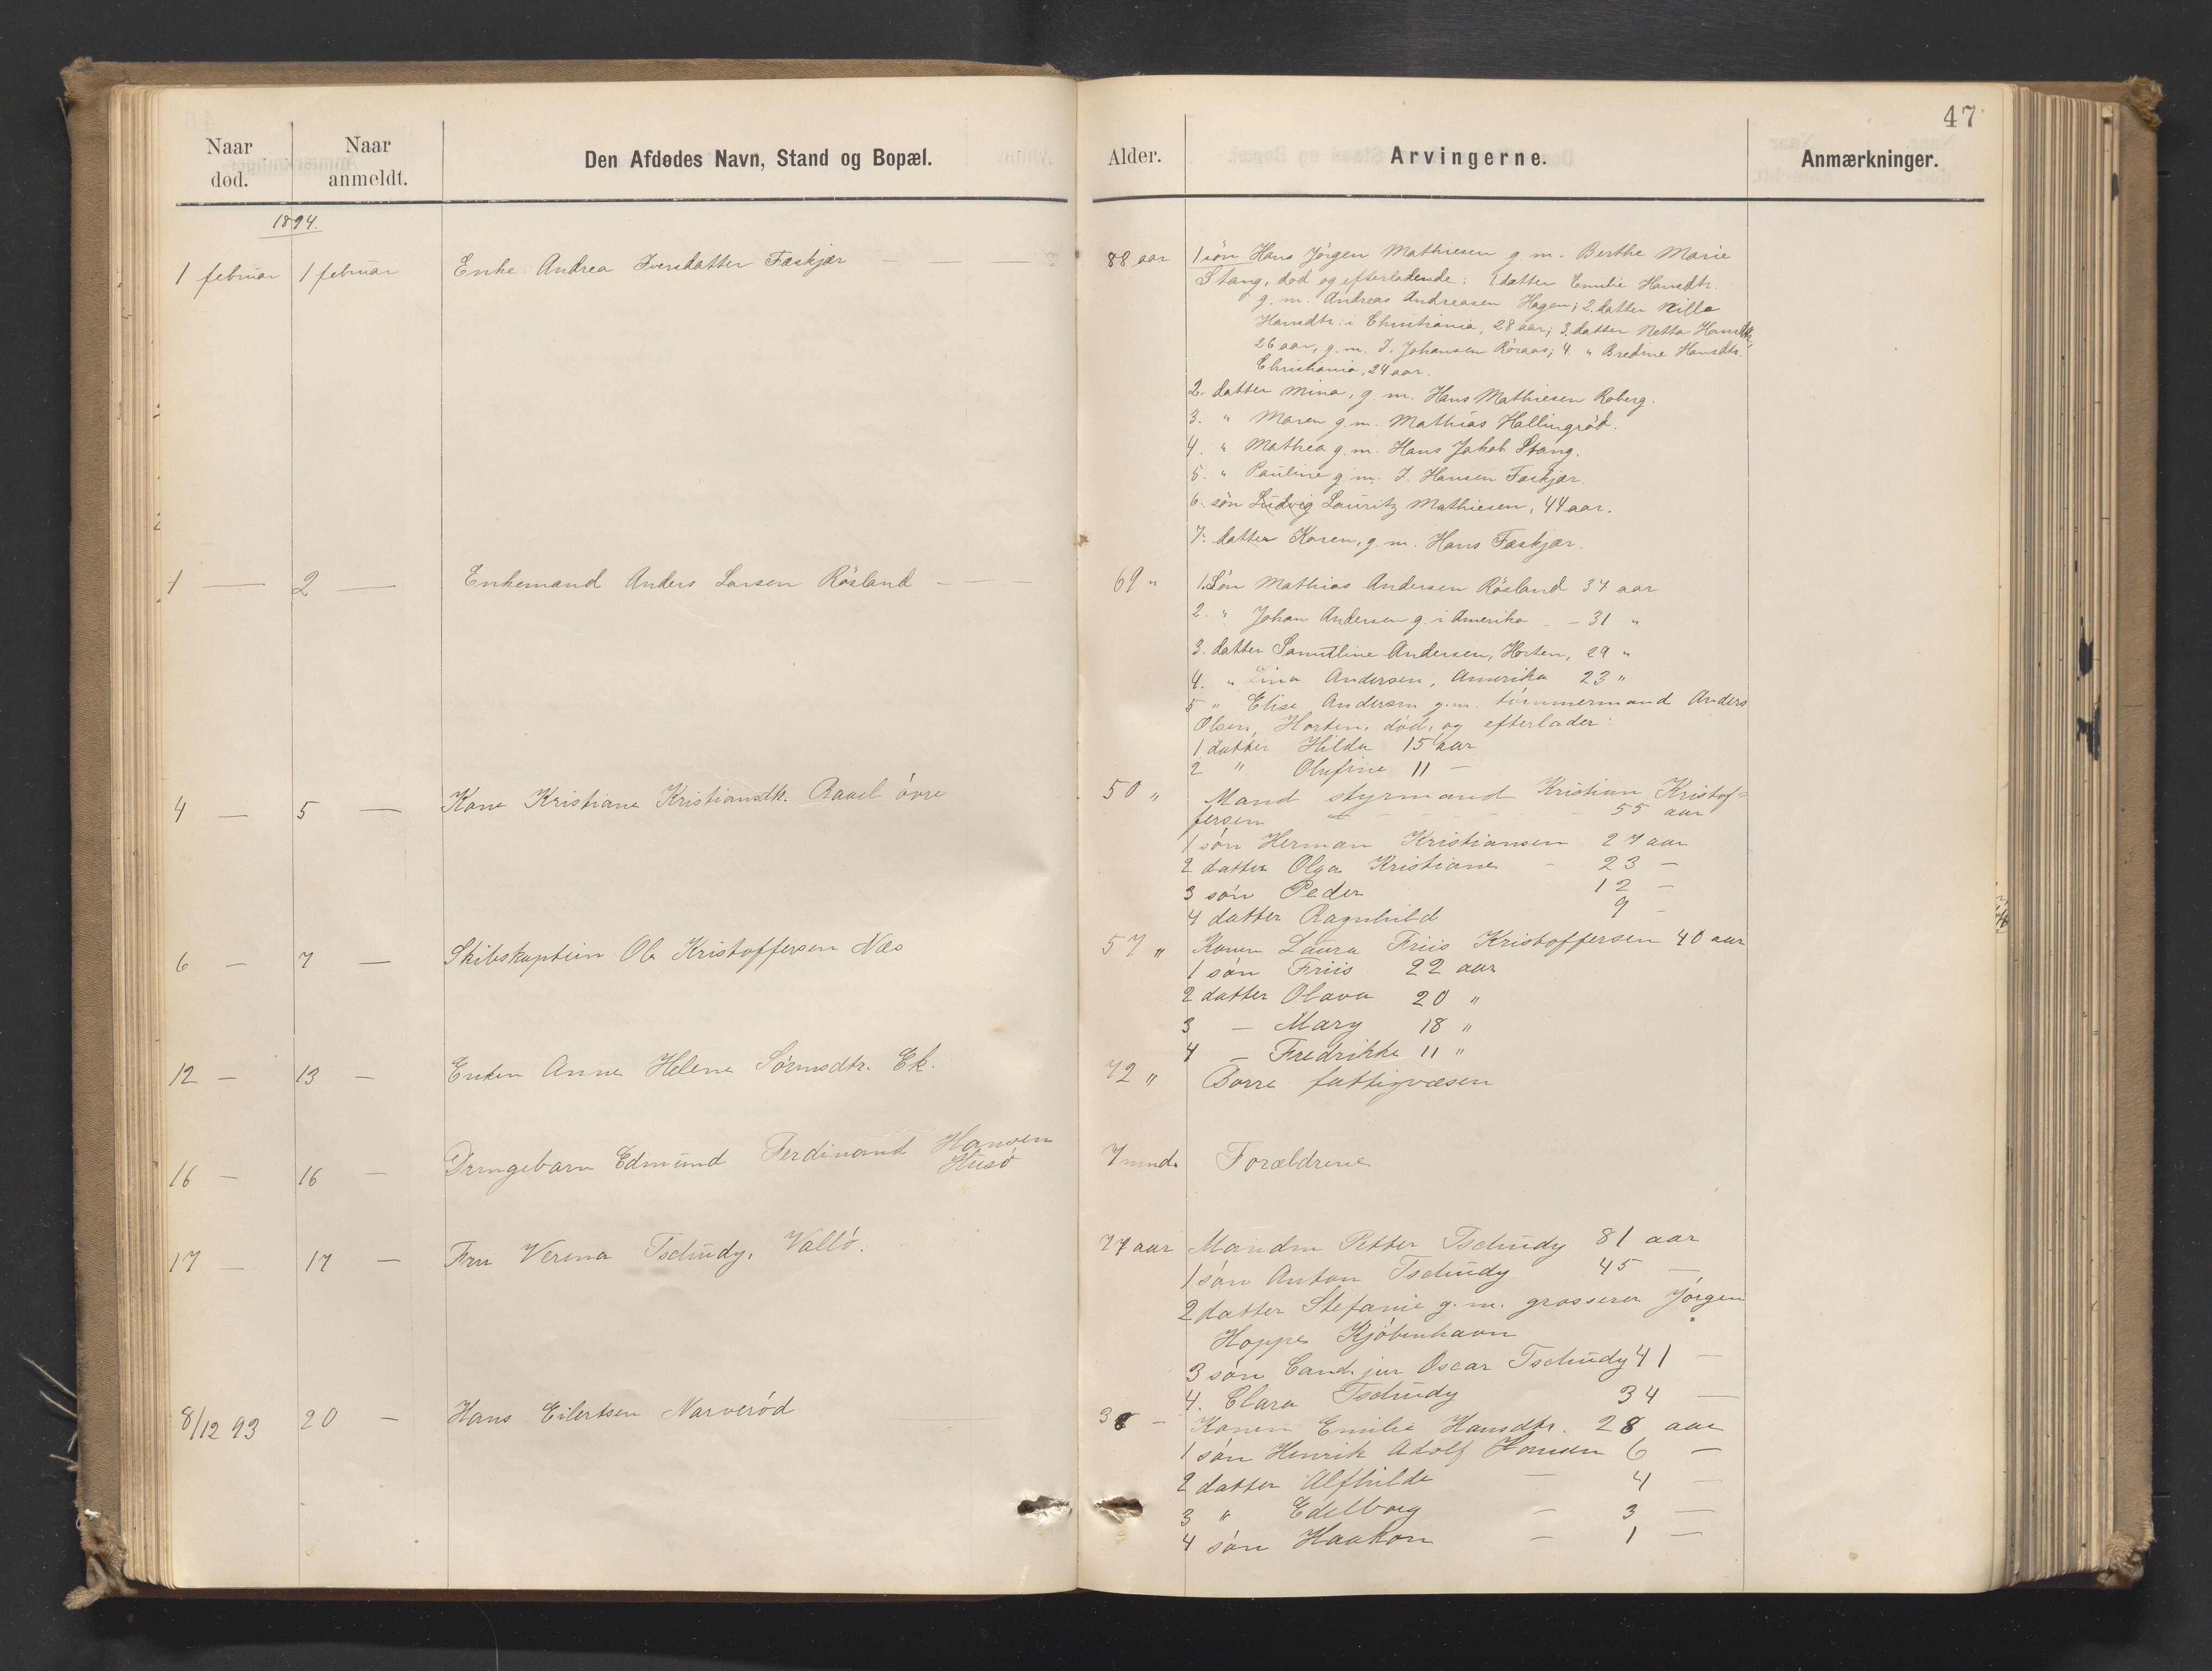 47
Naar død.
Naar anmeldt.
Den Afdødes Navn, Stand og Bopæl.
Alder.
Arvingerne.
Anmærkninger.
1894.
1 februar 1 februar Enke Andrea Iversdatter Fæskjær — — — 88 aar
1 søn Hans Jørgen Mathiesen g. m. Berthe Marie
Stang, død og efterladende: 1 datter Emilie Hansdtr.
g. m. Andreas Andreasen Hagen; 2. datter Nilla
Hansdtr. i Christiania, 28 aar; 3. datter Netta Hansdtr.
26 aar, g. m. J. Johansen Röraas; 4. " Bredine Hansdtr.
Christiania, 24 aar.
2. datter Mina, g. m. Hans Mathiesen Roberg.
3. " Maren g. m. Mathias Hallingrød.
4. " Mathea g. m. Hans Jakob Stang.
5. " Pauline g. m. J. Hansen Fæskjær.
6. søn Ludvig Lauritz Mathiesen, 44 aar.
7. datter Karen, g. m. Hans Fæskjær.
1 — 2 — Enkemand Anders Larsen Råsland — — — 69 "
1. Søn Mathias Andersen Råsland 37 aar
2. " Johan Andersen g. i Amerika — — 31 "
3. datter Andersen, Horten, 29 "
4. " Lina Andersen, Amerika 23 "
5 " Elise Andersen g. m. tømmermand Anders
Olsen, Horten, död, og efterlader:
1 datter Hilda 15 aar
2 " Olufine 11 —
4 — 5 — Kone Kristiane Kristiansdtr. Raael övre 50 "
Mand styrmand Kristian Kristof=
fersen — — — — 55 aar
1 søn Herman Kristiansen 27 aar
2 datter Olga Kristiane — 23 —
3 søn Peder 12 —
4 datter Ragnhild 9 —
6 — 7 — Skibskaptein Ole Kristoffersen Næs 57 "
Konen Laura Friis Kristoffersen 40 aar
1 søn Friis 22 aar
2 datter Olava 20 "
3 — Mary 18 "
4 — Fredrikke 11 "
12 — 13 — Enken Anne Helene Sörensdtr. Ek. 72 "
Borre fattigvæsen
16 — 16 — Drengebarn Edmund Ferdinand Hansen
Husö
7 mnd.
Forældrene
17 — 17 — Fru Verena Tschudy, Vallö. 77 aar
Manden Petter Tschudy 81 aar
1 søn Anton Tschudy 45 —
2 datter Stefanie g. m. grosserer Jörgen
Hoppe Kjöbenhavn
3 søn Cand. jur Oscar Tschudy 41 —
4. Clara Tschudy 34 —
8/12 93 20 — Hans Eilertsen Narveröd
Konen Emilie Hansdtr. 28 aar
1 søn Henrik Adolf Hansen 6 —
2 datter Alfhilde — 4 —
3 " Edelborg — 3 —
4 søn Haakon — 1 —